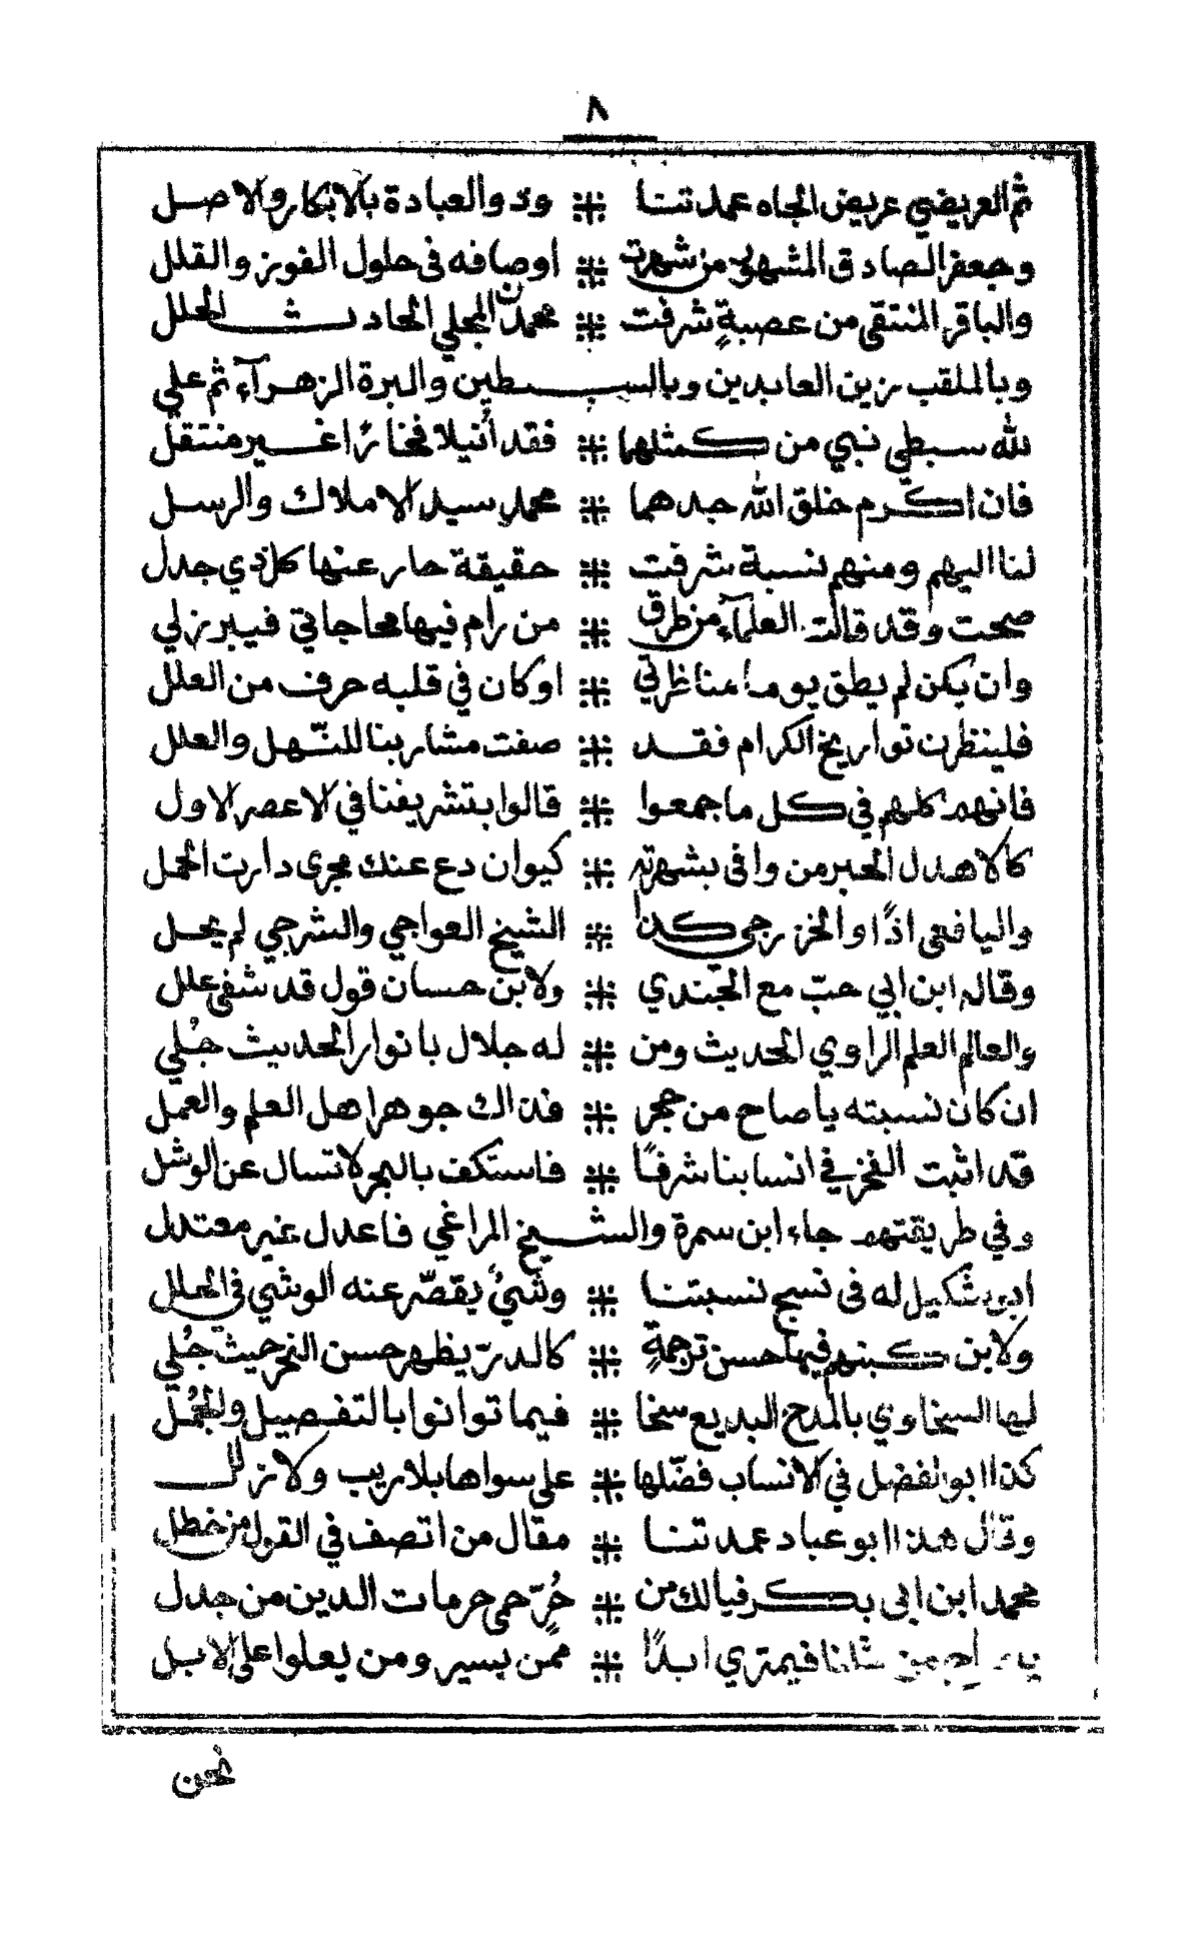 ٨
ثم العريضي عريض الجاه عمدتنا ⁜ وذو العبادة بالابكار والاصل
وجعفر الصادق المشهور من شهرت ⁜ اوصافه فى حلول الفوز والقلل
والباقر المنتقى من عصبةٍ شرفت ⁜ محمدن المجلي الحادث الجلل
وبالملقب بزين العابدين وبالسبطين والبرة الزهرآء ثم علي
لله سبطي نبي من كمثلهما ⁜ فقد أنيلا فخارًا غير منتقل
فان اكرم خلق الله جدهما ⁜ محمد سيد الاملاك والرسل
لنا اليهم ومنهم نسبة شرفت ⁜ حقيقة حار عنها كل ذي جدل
صحت وقد قالت العلمآء من طرق ⁜ من رام فيها محاجاتي فيبرز لي
وان يكن لم يطق يوما مناظرتي ⁜ او كان في قلبه حرف من العلل
فلينظرن تواريخ الكرام فقد ⁜ صفت مشاربنا للنّهل والعلل
فانهم كلهم في كل ما جمعوا ⁜ قالوا بتشريفنا في الاعصر الاول
كالاهدل الحبر من وافى بشهرته ⁜ كيوان دع عنك مجرى دارت الحمل
واليافعى اذًا والخزرجى كذا ⁜ الشيخ العواجي والشرجي لم يحل
وقاله ابن ابي حبّ مع الجندي ⁜ ولابن حسان قول قد شفى علل
والعالم العلم الراوي الحديث ومن ⁜ له جلال بانوار الحديث جُلي
ان كان نسبته يا صاح من حجر ⁜ فذاك جوهر اهل العلم والعمل
قد اثبت الفخر في انسابنا شرفًا ⁜ فاستكف بالبحر لا تسال عن الوشل
وفي طريقتهم جاء ابن سمرة والشيخ المراغي فاعدل غير معتدل
ابن شكيل له فى نسج نسبتنا ⁜ وشيٌ يقصّر عنه الوشي في الحلل
ولابن كبنهم فيها حسن ترجمةٍ ⁜ كالدرّ يظهر حسن النحر حيث جُلي
لها السخاوي بالمدح البديع سخا ⁜ فيما توانوا بالتفصيل والجُمل
كذا ابو الفضل في الانساب فضّلها ⁜ على سواها بلا ريب ولا زلل
وقال هذا ابو عباد عمدتنا ⁜ مقال من اتصف في القول من خطل
محمد ابن ابى بكر فيالك من ⁜ حُرّ حمى حرمات الدين من جدل
من مثلنا فيمتري ابدًا ⁜ ممن يسير ومن يعلوا على الابل
نحن